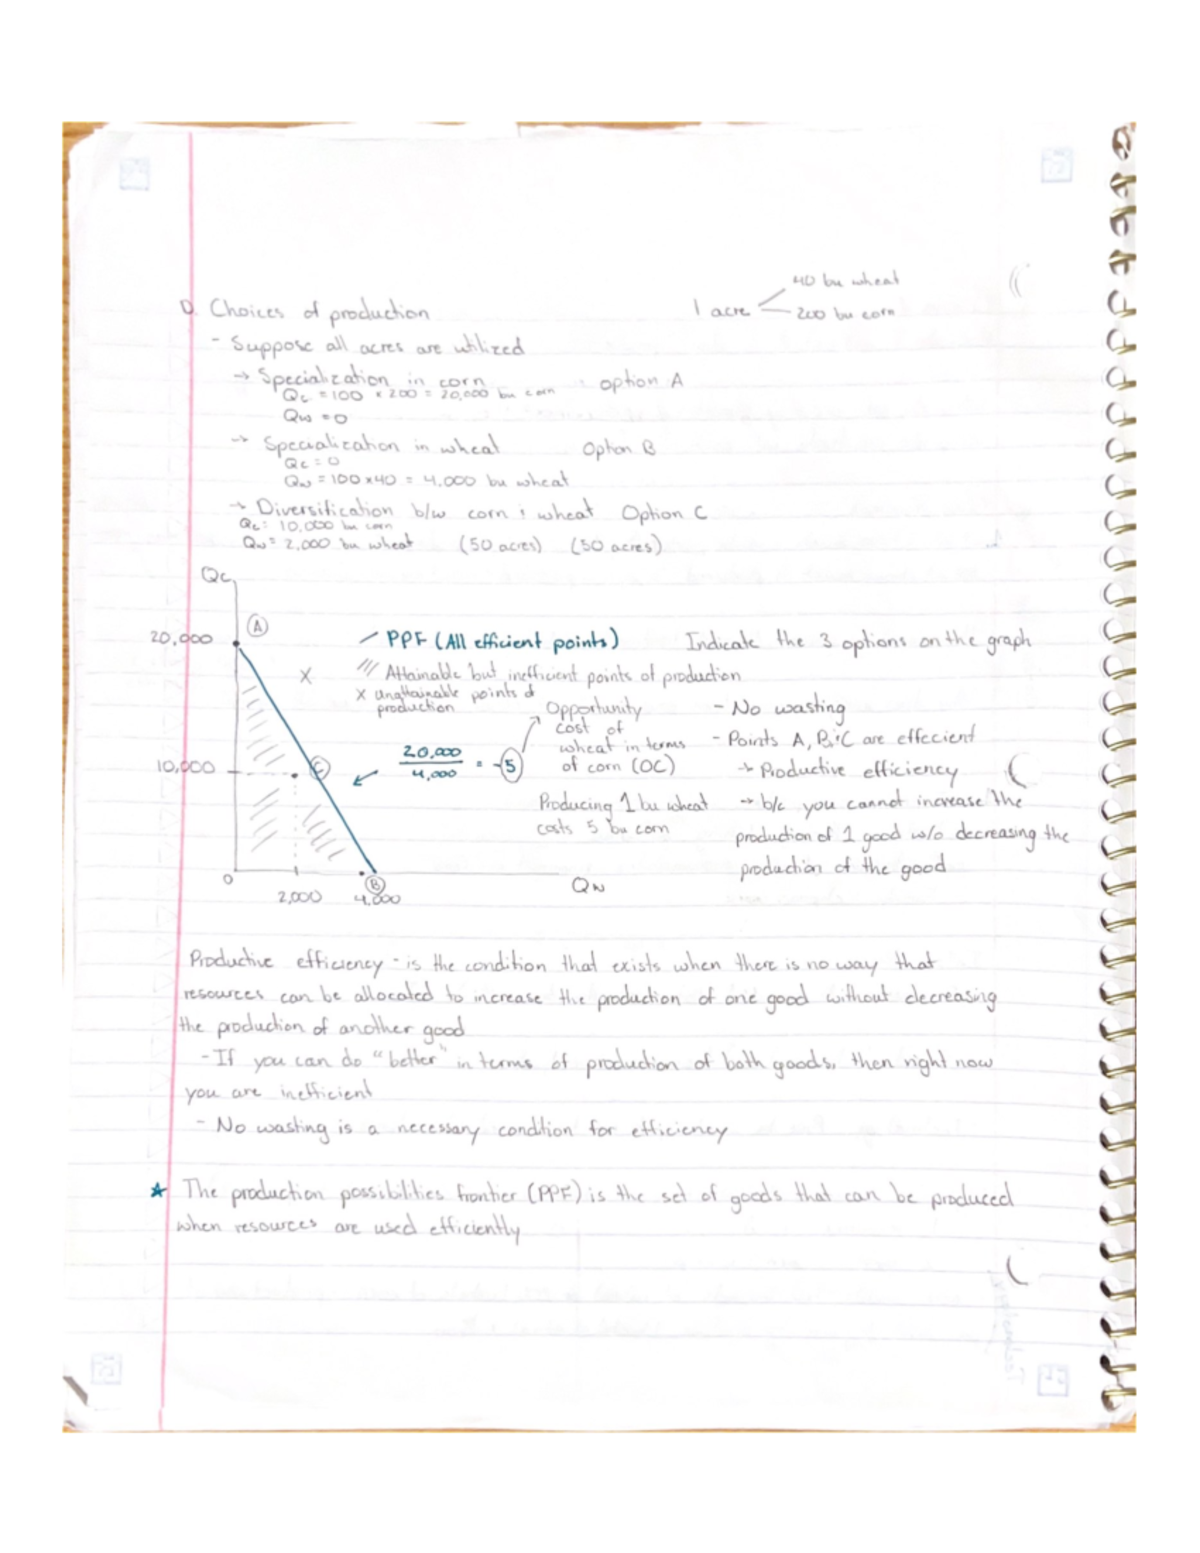 40 bu wheat
D. Choices of production
1 acre
200 bu corn
- Suppose all acres are utilized
→ Specialization in corn : option A
Qc = 100 x 200 = 20,000 bu corn
Qw = 0
→ Specialization in wheat Option B
Qc = 0
Qw = 100 x 40 = 4,000 bu wheat
→ Diversification b/w corn : wheat Option C
Qc = 10,000 bu corn
Qw = 2,000 bu wheat (50 acres) (50 acres)
Qc
A
20,000
PPF (All efficient points)
Indicate the 3 options on the graph
X
/// Attainable but inefficient points of production
x unattainable points of
production
Opportunity
cost of
wheat in terms
of corn (OC)
- No wasting
- Points A, B : C are effecient
→ Productive efficiency
→ b/c you cannot increase the
production of 1 good w/o decreasing the
production of the good
20,000
4,000
= -5
Producing 1 bu wheat
costs 5 bu corn
10,000
C
0
2,000
B
4,000
Qw
Productive efficiency - is the condition that exists when there is no way that
resources can be allocated to increase the production of one good without decreasing
the production of another good
- If you can do "better" in terms of production of both goods, then right now
you are inefficient
- No wasting is a necessary condition for efficiency
★ The production possibilities frontier (PPF) is the set of goods that can be produced
when resources are used efficiently